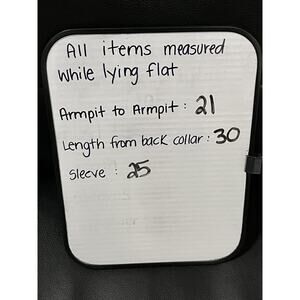 All items measured
while lying flat
Armpit to Armpit : 21
Length from back collar : 30
Sleeve : 25